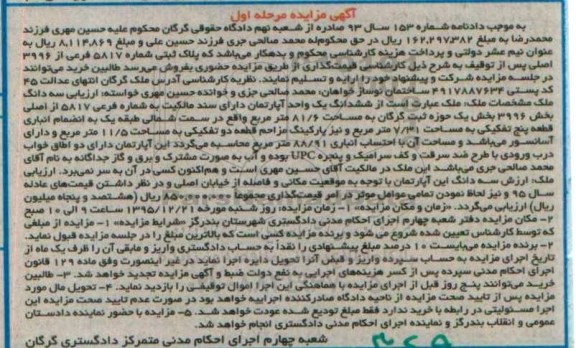 آگهی مزایده مرحله اول
به موجب دادنامه شماره ۱۵۳ سال ۹۳ صادره از شعبه نهم دادگاه حقوقی گرگان محکوم علیه حسین مهری فرزند
محمدرضا به مبلغ ۱۶۲,۲۹۷,۳۸۲ ریال در حق محکوم‌له محمد صالحی جری فرزند حسین علی و مبلغ ۸,۱۱۴,۸۶۹ ریال به
عنوان نیم عشر دولتی و پرداخت هزینه کارشناسی محکوم و بدهکار می‌باشد که پلاک ثبتی شماره ۵۸۱۷ فرعی از ۳۹۹۶
اصلی پس از توقیف به شرح ذیل کارشناسی قیمت‌گذاری از طریق مزایده حضوری بفروش می‌رسد طالبین خرید می‌توانند
در جلسه مزایده شرکت و پیشنهاد خود را ارایه و تسلیم نمایند. نظریه کارشناسی آدرس ملک گرگان انتهای عدالت ۴۵
کد پستی ۴۹۱۷۸۸۷۶۳۴ ساختمان نوساز خواهان: محمد صالحی جزی و خوانده حسین مهری خواسته: ارزیابی سه دانگ
ملک مشخصات ملک: ملک عبارت است از ششدانگ یک واحد آپارتمان دارای سند مالکیت به شماره فرعی ۵۸۱۷ از اصلی
۳۹۹۶ بخش یک حوزه ثبت گرگان به مساحت ۸۱/۶ متر مربع واقع در سمت شمالی طبقه یک به انضمام انباری
قطعه پنج تفکیکی به مساحت ۷/۳۱ متر مربع و نیز پارکینگ مزاحم قطعه دو تفکیکی به مساحت ۱۱/۵ متر مربع و دارای
آسانسور می‌باشد و مساحت آن با احتساب انباری ۸۸/۹۱ متر مربع محاسبه می‌گردد این آپارتمان دارای دو اطاق خواب
درب ورودی با طرح ضد سرقت و کف سرامیک و پنجره UPC بوده و آب به صورت مشترک و برق و گاز جداگانه به نام آقای
محمد صالحی جزی می‌باشد این ملک در مالکیت آقای حسین مهری است و هم‌اکنون کسی در آن به سر نمی‌برد. ارزیابی
ملک: ارزش سه دانگ این آپارتمان با توجه به موقعیت مکانی و فاصله از خیابان اصلی و در نظر داشتن قیمت‌های عادله
سال ۹۵ و نیز لحاظ نمودن تمامی عوامل موثر در امر قیمت‌گذاری مجموعاً ریال (هشتصد و پنجاه میلیون
ریال) ارزیابی می‌گردد. «زمان و مکان مزایده» ۱- زمان مزایده: روز شنبه مورخه ۱۳۹۵/۱۲/۲۱ ساعت ۹ الی ۱۰ صبح
۲- مکان مزایده دفتر شعبه چهارم اجرای احکام مدنی دادگستری شهرستان بندرگز «شرایط مزایده» ۱- مزایده از مبلغی
که توسط کارشناس تعیین شده شروع می شود و برنده مزایده کسی است که بالاترین مبلغ را در جلسه مزایده قبول نماید
۲- برنده مزایده می‌بایست ۱۰ درصد مبلغ پیشنهادی را نقداً به حساب دادگستری واریز و مابقی آن را ظرف یک ماه از
تاریخ اجرای مزایده به حساب سپرده واریز و قبض آنرا تحویل دایره اجرا نماید در غیر اینصورت وفق ماده ۱۲۹ قانون
اجرای احکام مدنی سپرده پس از کسر هزینه‌های اجرایی به نفع دولت ضبط و آگهی مزایده تجدید خواهد شد. ۳- طالبین
خرید می‌توانند پنج روز قبل از اجرای مزایده با هماهنگی این اجرا اموال توقیفی را بازدید نماید. ۴- تحویل مال مورد
مزایده پس از تایید صحت مزایده از ناحیه دادگاه صادرکننده اجراییه خواهد بود در صورت عدم تایید صحت مزایده این
اجرا مسئولیتی در رابطه با خرید ندارد فقط مبلغ تودیع شده عودت خواهد شد. ۵- مزایده با حضور نماینده دادستان
عمومی و انقلاب بندرگز و نماینده اجرای احکام مدنی دادگستری انجام خواهد شد.
شعبه چهارم اجرای احکام مدنی متمرکز دادگستری گرگان